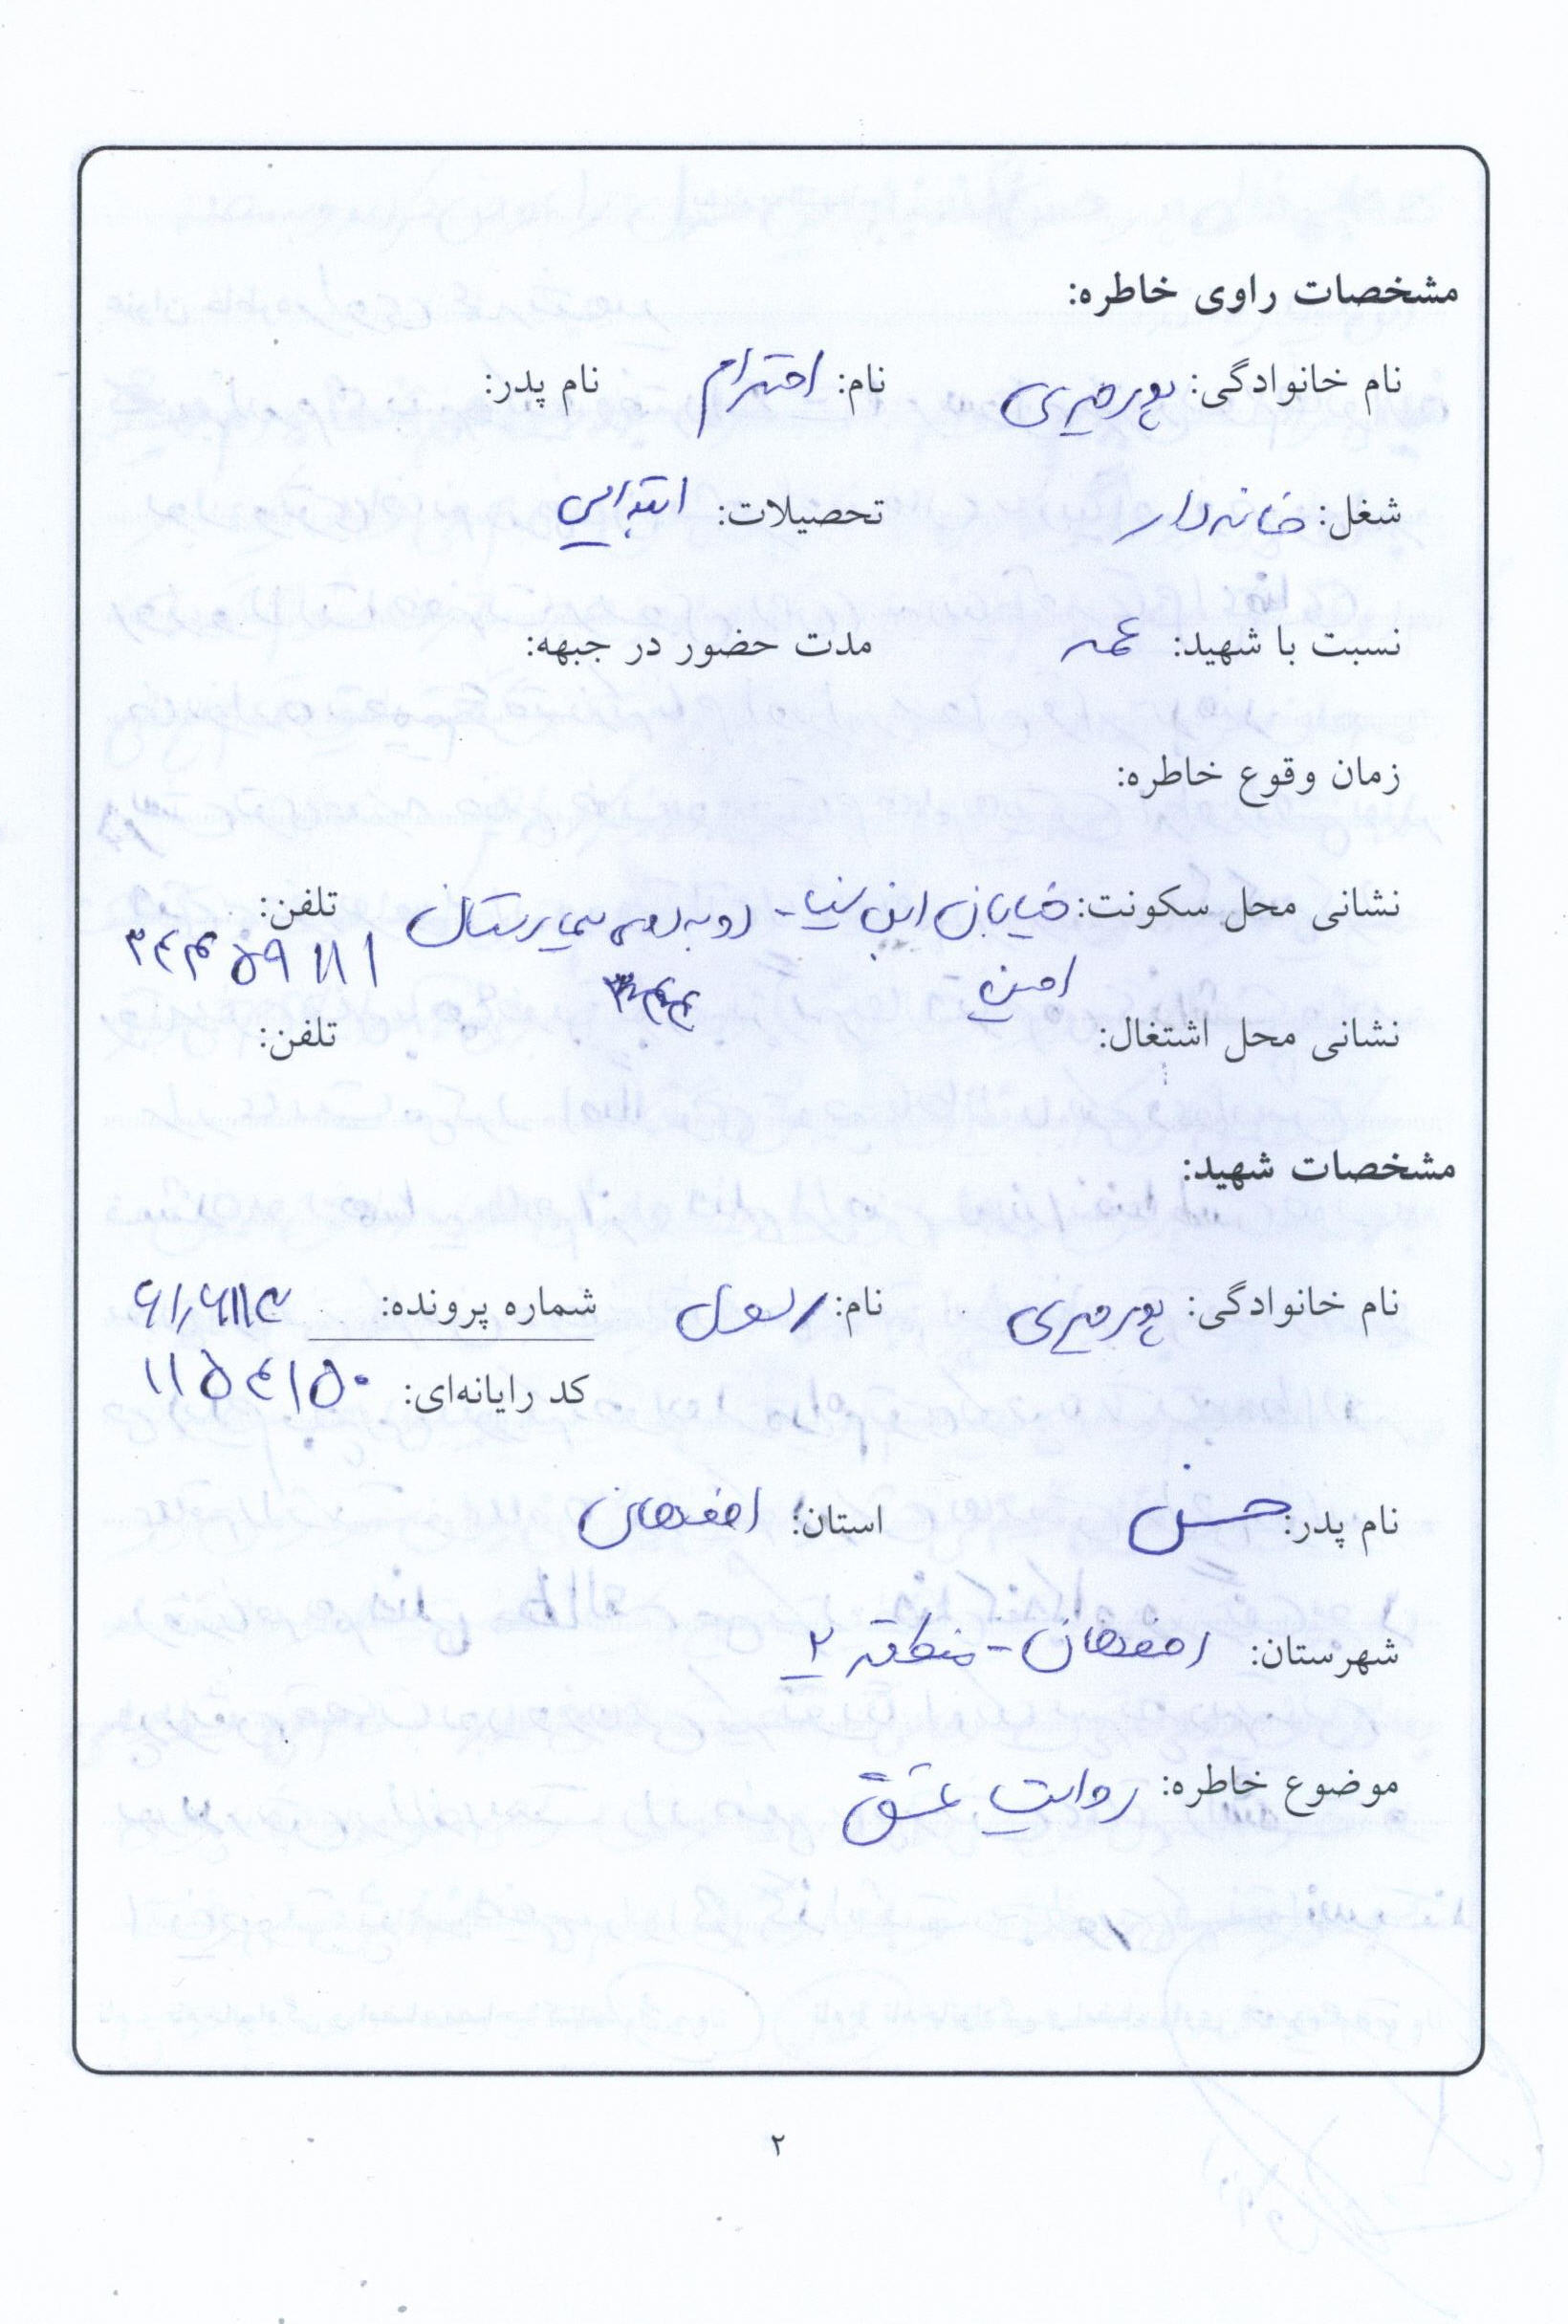 مشخصات راوی خاطره:
نام خانوادگی: پورمیری نام: احترام نام پدر:
شغل: خانه‌دار تحصیلات: ابتدایی
نسبت با شهید: عمه مدت حضور در جبهه:
زمان وقوع خاطره:
نشانی محل سکونت: خیابان ابن سینا - روبه‌روی بیمارستان تلفن:
امین
نشانی محل اشتغال: تلفن:
مشخصات شهید:
نام خانوادگی: پورمیری نام: رسول شماره پرونده:
کد رایانه‌ای: ۱۱۵۴۱۵۰
نام پدر: حسن استان: اصفهان
شهرستان: اصفهان - منطقه ۲
موضوع خاطره: روایت عشق
۲